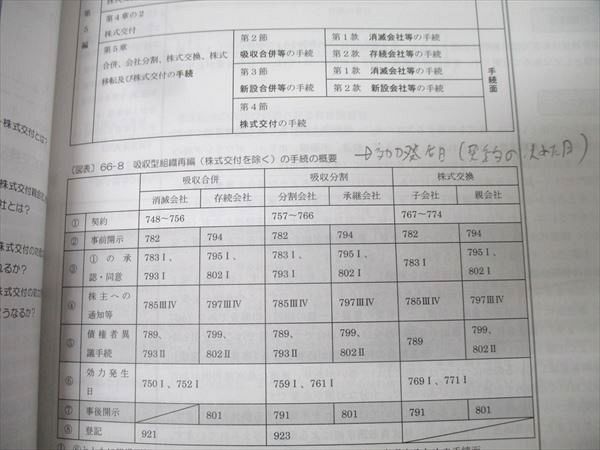 第5編
第4章の2
株式交付
第5章
合併、会社分割、株式交換、株式
移転及び株式交付の手続
第2節
吸収合併等の手続
第1款 消滅会社等の手続
第2款 存続会社等の手続
第3節
新設合併等の手続
第1款 消滅会社等の手続
第2款 新設会社等の手続
第4節
株式交付の手続
手続面
株式交付とは?
株式交付親会社
社とは?
株式交付の
れるか?
株式交付の効力
どうなるか?
〔図表〕66-8 吸収型組織再編(株式交付を除く)の手続の概要
吸収合併 吸収分割 株式交換
消滅会社 存続会社 分割会社 承継会社 子会社 親会社
① 契約 748～756 757～766 767～774
② 事前開示 782 794 782 794 782 794
③ ①の承認・同意 783Ⅰ、793Ⅰ 795Ⅰ、802Ⅰ 783Ⅰ、793Ⅰ 795Ⅰ、802Ⅰ 783Ⅰ 795Ⅰ、802Ⅰ
④ 株主への通知等 785ⅢⅣ 797ⅢⅣ 785ⅢⅣ 797ⅢⅣ 785ⅢⅣ 797ⅢⅣ
⑤ 債権者異議手続 789、793Ⅱ 799、802Ⅱ 789、793Ⅱ 799、802Ⅱ 789 799、802Ⅱ
⑥ 効力発生日 750Ⅰ、752Ⅰ 759Ⅰ、761Ⅰ 769Ⅰ、771Ⅰ
⑦ 事後開示 801 791 801 791 801
⑧ 登記 921 923